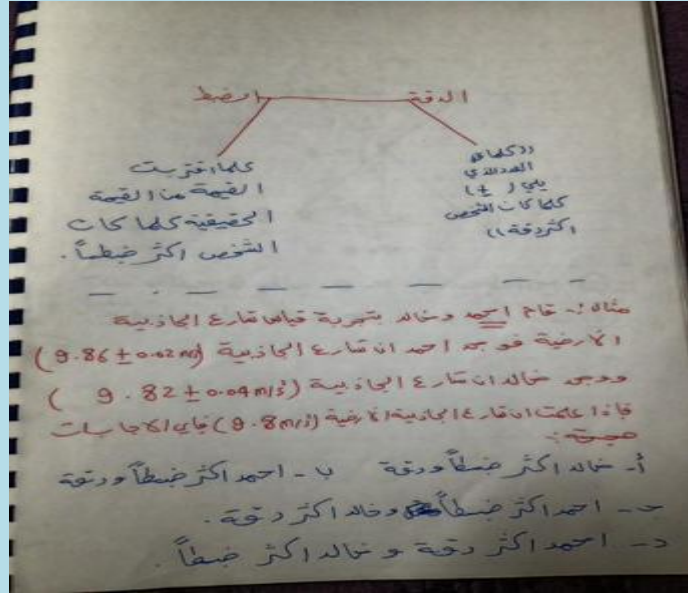 الدقة
الضبط
((كلما قل
العدد الذي
يلي ( ± )
كلما كان الشخص
اكثر دقة ))
كلما اقتربت
القيمة من القيمة
الحقيقية كلما كان
الشخص اكثر ضبطاً.
مثال:- قام احمد وخالد بتجربة قياس تسارع الجاذبية
الارضية فوجد احمد ان تسارع الجاذبية (9.86 ± 0.02 m/
ووجد خالد ان تسارع الجاذبية (9.82 ± 0.04 m/s²)
فإذا علمت ان تسارع الجاذبية الارضية (9.8 m/s²) فأي الاجابات
صحيحة:-
أ- خالد اكثر ضبطاً ودقة ب- احمد اكثر ضبطاً ودقة
ج- احمد اكثر ضبطاً وخالد اكثر دقة.
د- احمد اكثر دقة وخالد اكثر ضبطاً.